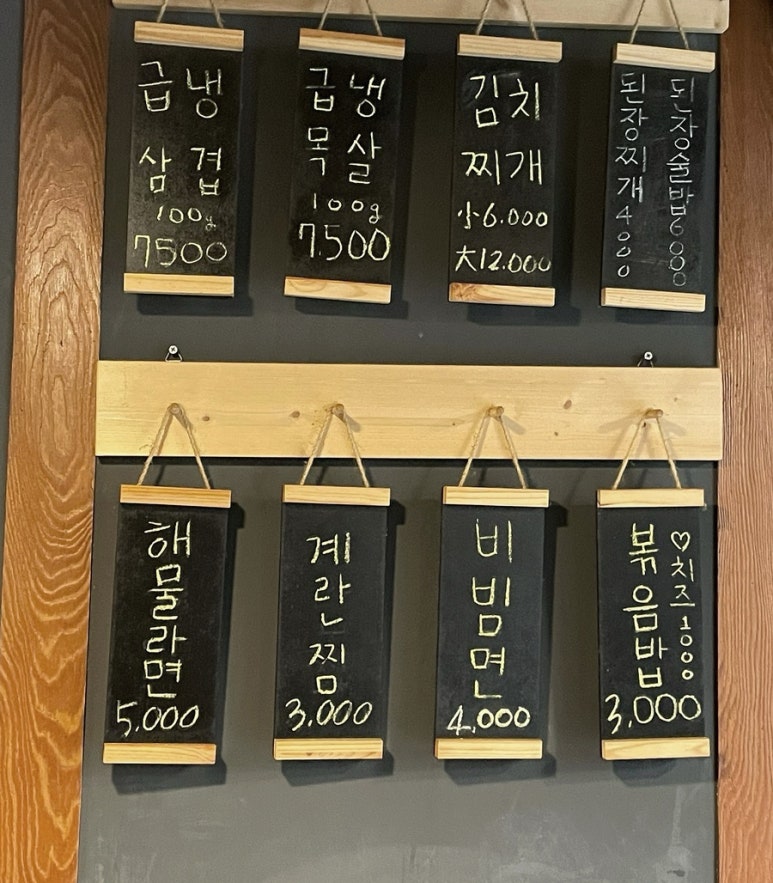 급냉
삼겹
100g
7500
급냉
목살
100g
7.500
김치
찌개
小6.000
大12.000
된장찌개4000
된장술밥6000
해물라면
5,000
계란찜
3.000
비빔면
4,000
볶음밥
♡치즈1000
3,000